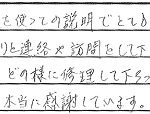 を使っての説明でとても
りと連絡や訪問をして下
どの様に修理して下さっ
本当に感謝しています。